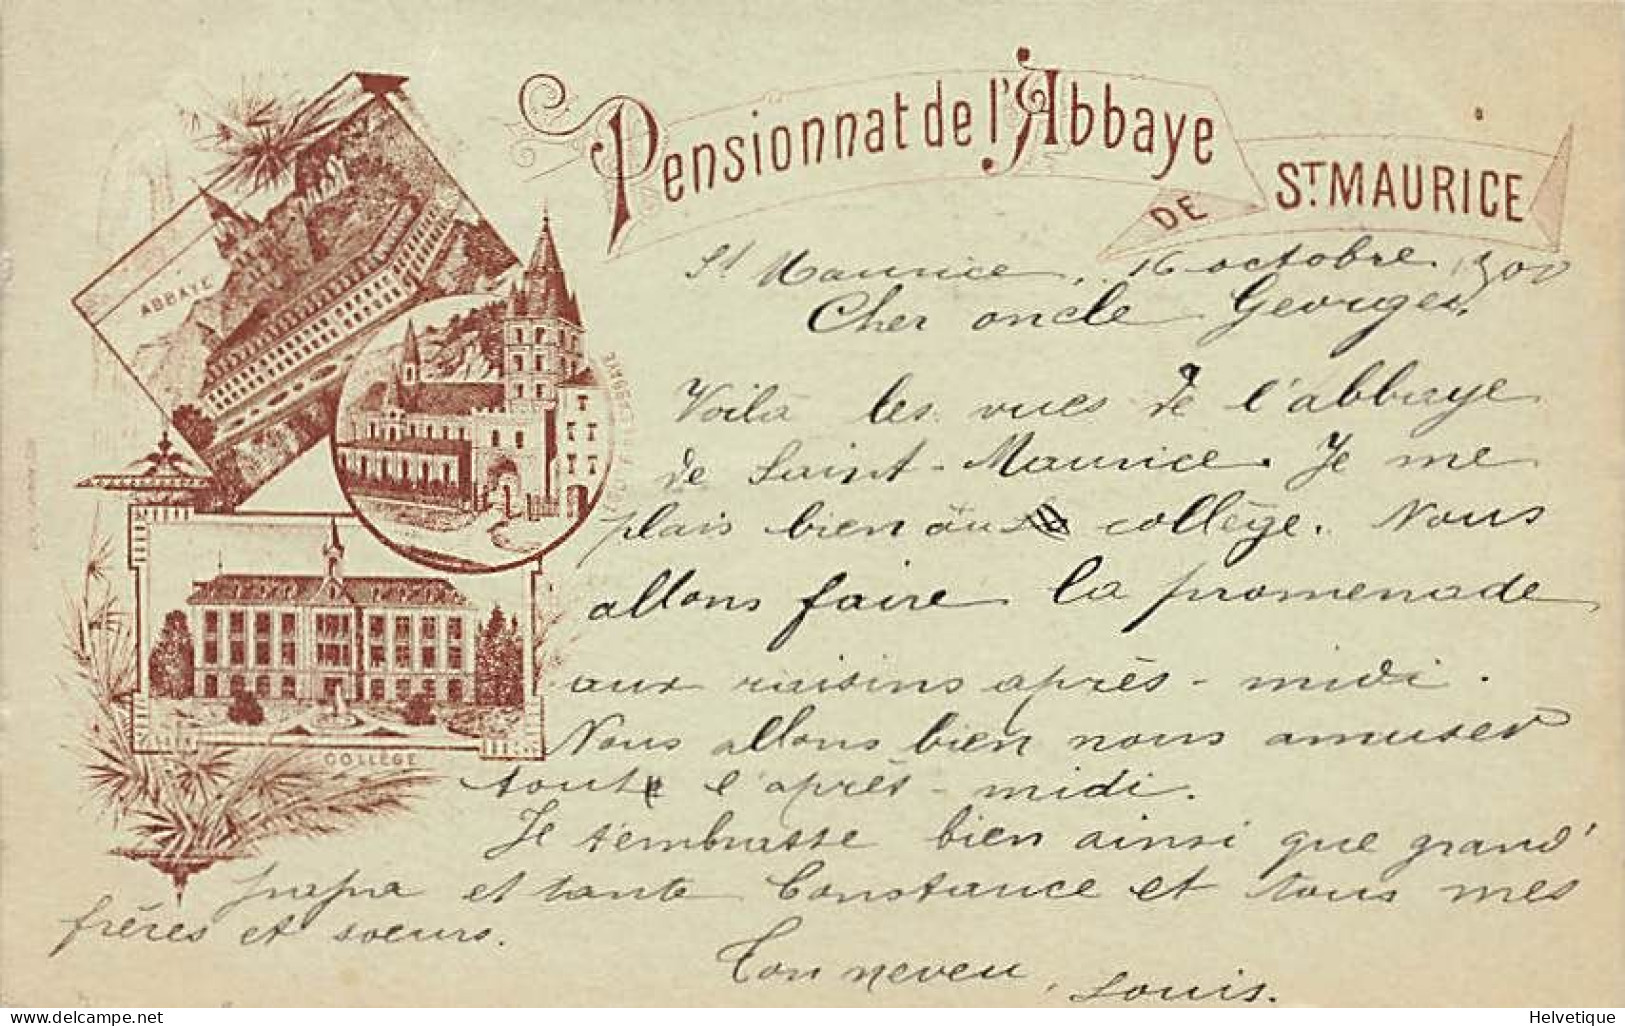 Pensionnat de l'Abbaye
DE ST. MAURICE
ABBAYE
COLLÈGE
St Maurice, 16 octobre 1900
Cher oncle Georges,
Voilà les vues de l'abbaye
de Saint-Maurice. Je me
plais bien au collège. Nous
allons faire la promenade
aux raisins après-midi.
Nous allons bien nous amuser
tout l'après-midi.
Je t'embrasse bien ainsi que grand'
papa et tante Constance et tous mes
frères et soeurs.
Ton neveu, Louis.
delcampe.net
Helvetique